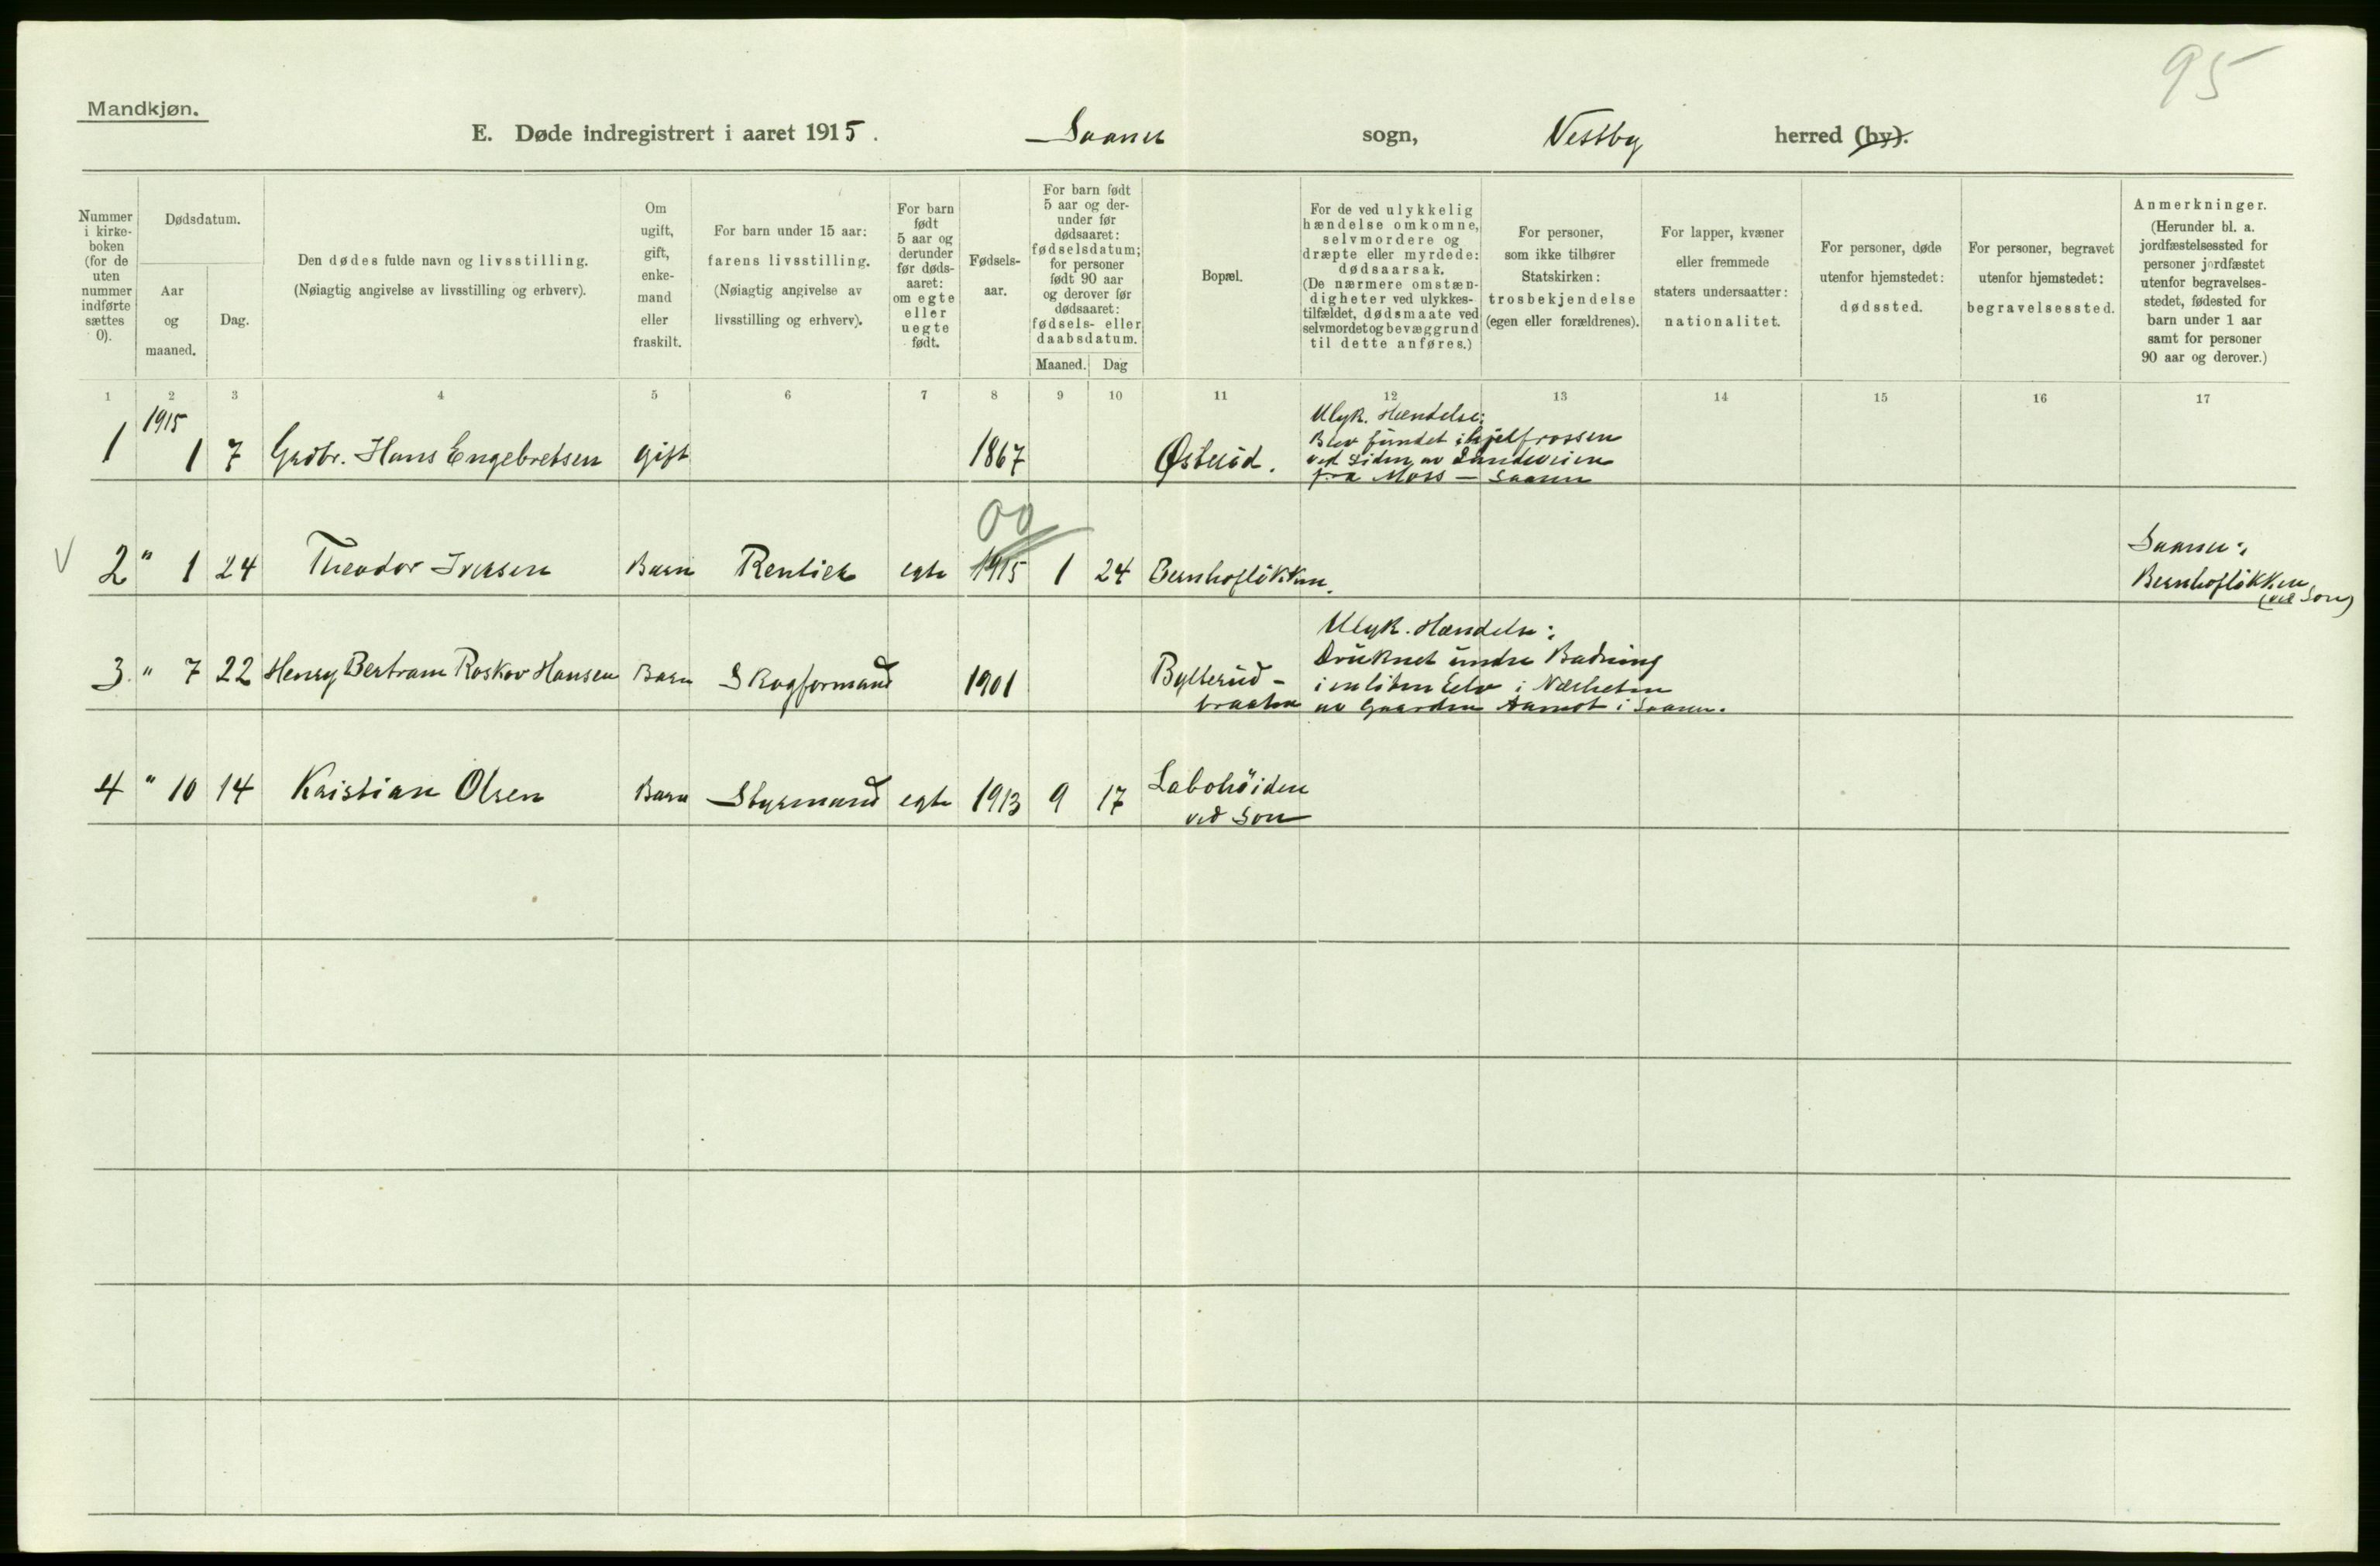 95
Mandkjøn.
E. Døde indregistrert i aaret 1915. Saaner sogn, Vestby herred (by).
Nummer i kirke- boken (for de uten nummer indførte sættes 0).
Dødsdatum.
Aar og maaned.
Dag.
Den dødes fulde navn og livsstilling.
(Nøiagtig angivelse av livsstilling og erhverv).
Om ugift, gift, enke- mand eller fraskilt.
For barn under 15 aar: farens livsstilling.
(Nøiagtig angivelse av livsstilling og erhverv).
For barn født 5 aar og derunder før døds- aaret: om egte eller uegte født.
Fødsels- aar.
For barn født 5 aar og der- under før dødsaaret: fødselsdatum; for personer født 90 aar og derover før dødsaaret: fødsels- eller daabsdatum.
Maaned. Dag
Bopæl.
For de ved ulykkelig hændelse omkomne, selvmordere og dræpte eller myrdede: dødsaarsak.
(De nærmere omstæn- digheter ved ulykkes- tilfældet, dødsmaate ved selvmordet og bevæggrund til dette anføres.)
For personer, som ikke tilhører Statskirken: trosbekjendelse (egen eller forældrenes).
For lapper, kvæner eller fremmede staters undersaatter: nationalitet.
For personer, døde utenfor hjemstedet: dødssted.
For personer, begravet utenfor hjemstedet: begravelsessted.
Anmerkninger.
(Herunder bl. a. jordfæstelsessted for personer jordfæstet utenfor begravelses- stedet, fødested for barn under 1 aar samt for personer 90 aar og derover.)
1 2 3 4 5 6 7 8 9 10 11 12 13 14 15 16 17
1 1915 1 7 Gardbr. Hans Engebretsen gift 1867 Østeröd.
Ulyk. Hændelse:
Blev fundet ihjelfrossen
ved Siden av Landeveien
fra Moss — Saaner
00
V 2 " 1 24 Theodor Iversen Barn Rentier egte 1915 1 24 Bernhoflökken.
Saaner:
Bernhoflökken
(ved Son)
3. " 7 22 Henry Bertram Roskov Hansen Barn Skogformand 1901 Bylterud-
braaten
Ulyk. Hændelse:
Druknet under Badning
i en liten Elv i Nærheten
av Gaarden Aamot i Saaner.
4 " 10 14 Kristian Olsen Barn Styrmand egte 1913 9 17 Labohöiden
ved Son